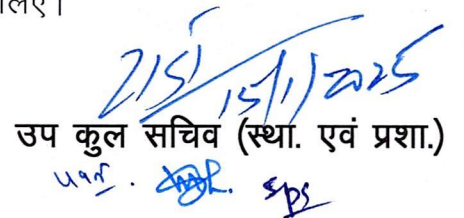 लिए।
15/1/2025
उप कुल सचिव (स्था. एवं प्रशा.)